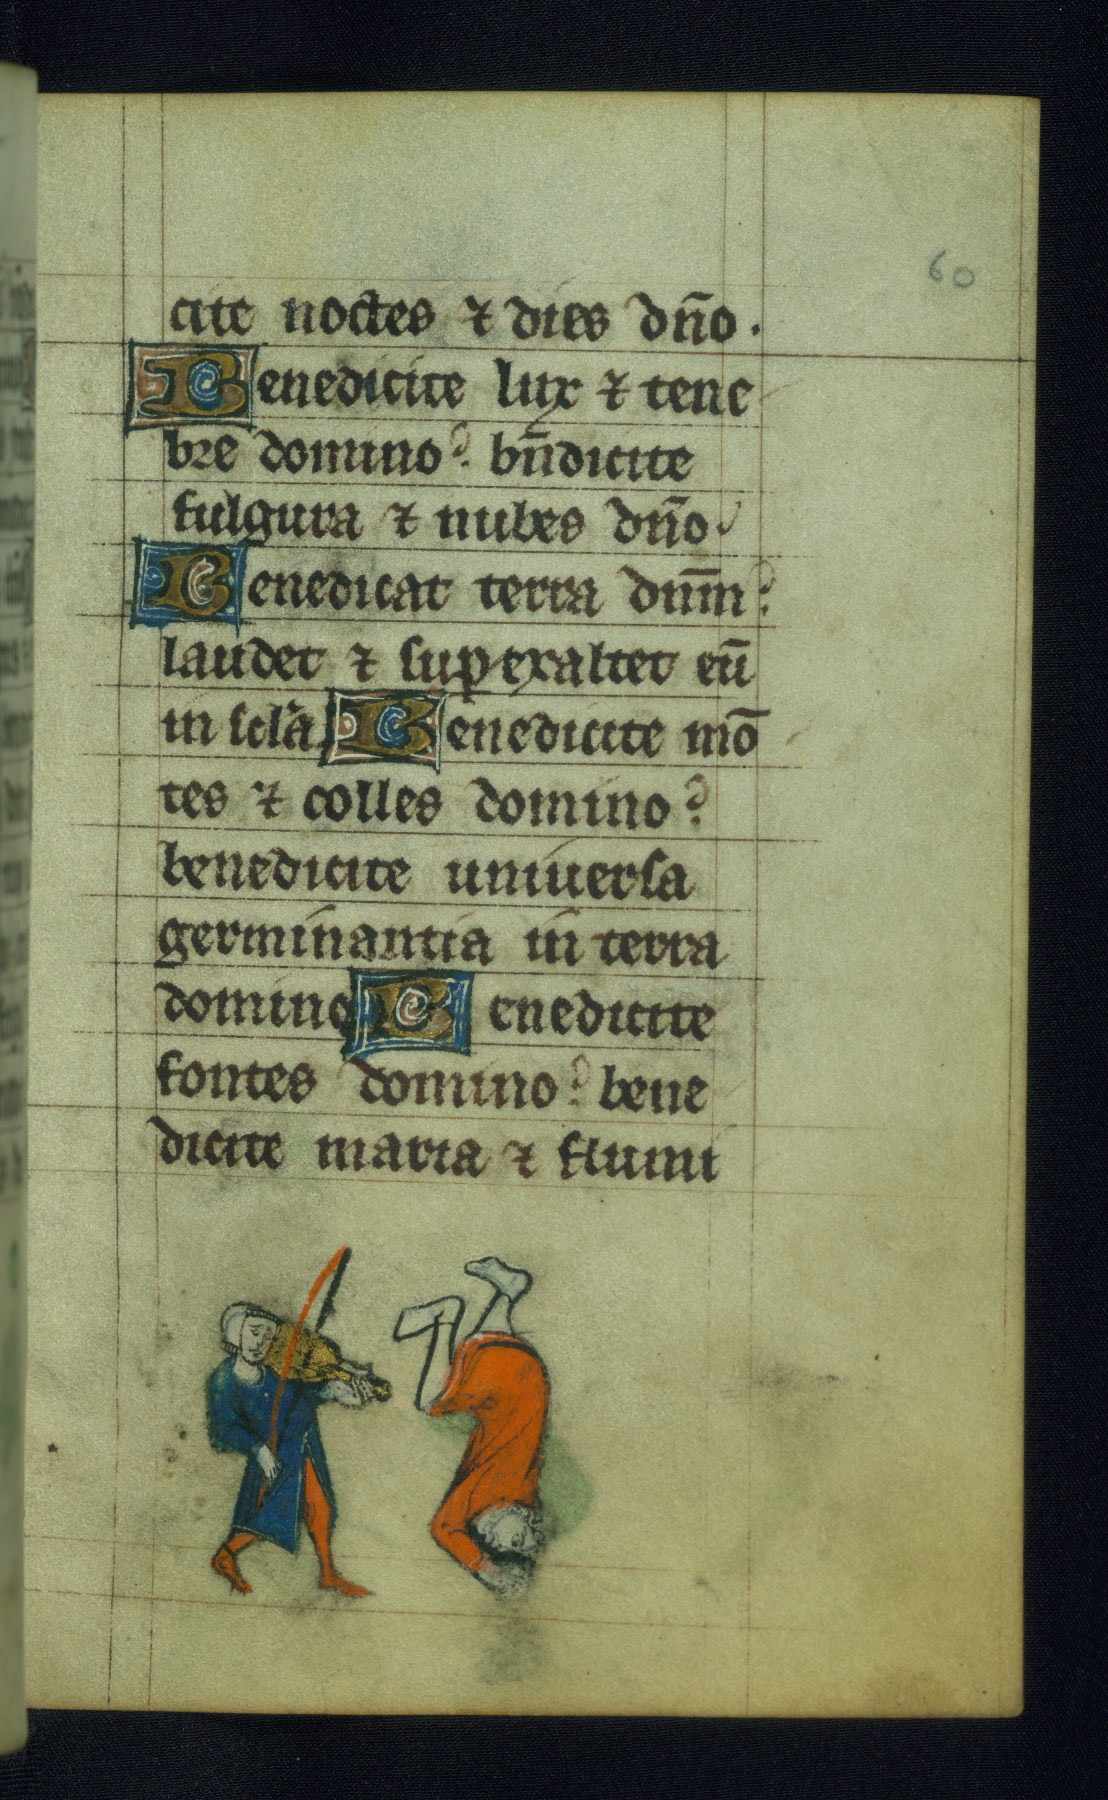 60
cite noctes ⁊ dies dn̄o.
Benedicite lux ⁊ tene
bre domino? bn̄dicite
fulgura ⁊ nubes dn̄o
Benedicat terra dn̄m?
laudet ⁊ suꝑexaltet eū
in scl̄a Benedicite mō
tes ⁊ colles domino?
benedicite uniuersa
germinantia in terra
domino Benedicite
fontes domino? bene
dicite maria ⁊ flumi